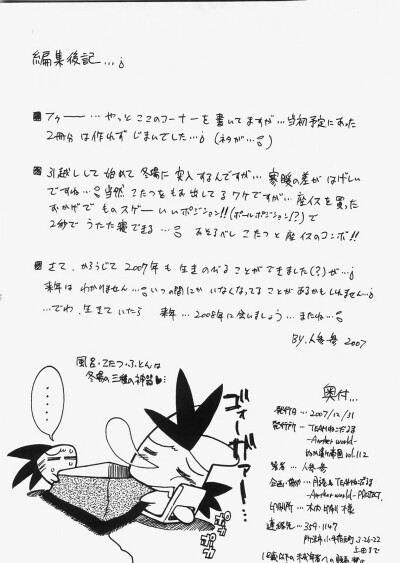 編集後記...。
■フゥーー…やっとここのコーナーを書いてますが…当初予定にあった
2冊分は作れずじまいでした…。(ネタが…。)
■引越しして始めて冬場に突入するんですが…寒暖の差がはげしい
ですね…。当然こたつをもお出してるワケですが…座イスを買った
おかげでものスゲーいいポジション!!(ポールポジション!?)で
2秒でうたた寝できる…。おそるべしこたつと座イスのコンボ!!
■さて、かろうじて2007年も生きのびることができました(?)が…。
来年はわかりません…。いつの間にかいなくなってることがあるかもしれません…。
…でわ、生きていたら 来年…2008年に会いましょう…またね…。
BY. 人参参 2007
風呂・こたつ・ふとんは
冬場の三種の神器♥…。
・・・・・・
ゴォーガァー!…
ポカポカ
ポカポカ
奥付…
発行日… 2007/12/31
発行所… TEAMねこだるま
-Another world-
vol.112
著者… 人参参
-Another world- PROJECT.
印刷所…
連絡先… 359-1147
3-26-22